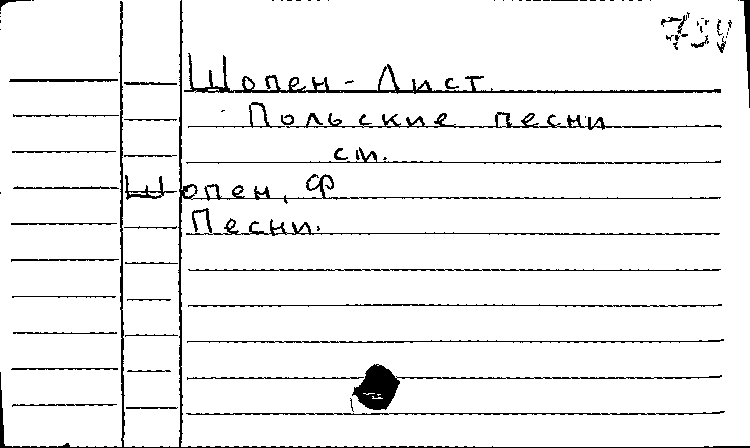 Шопен - Лист
Польские песни
см.
Шопен, Ф
Песни.